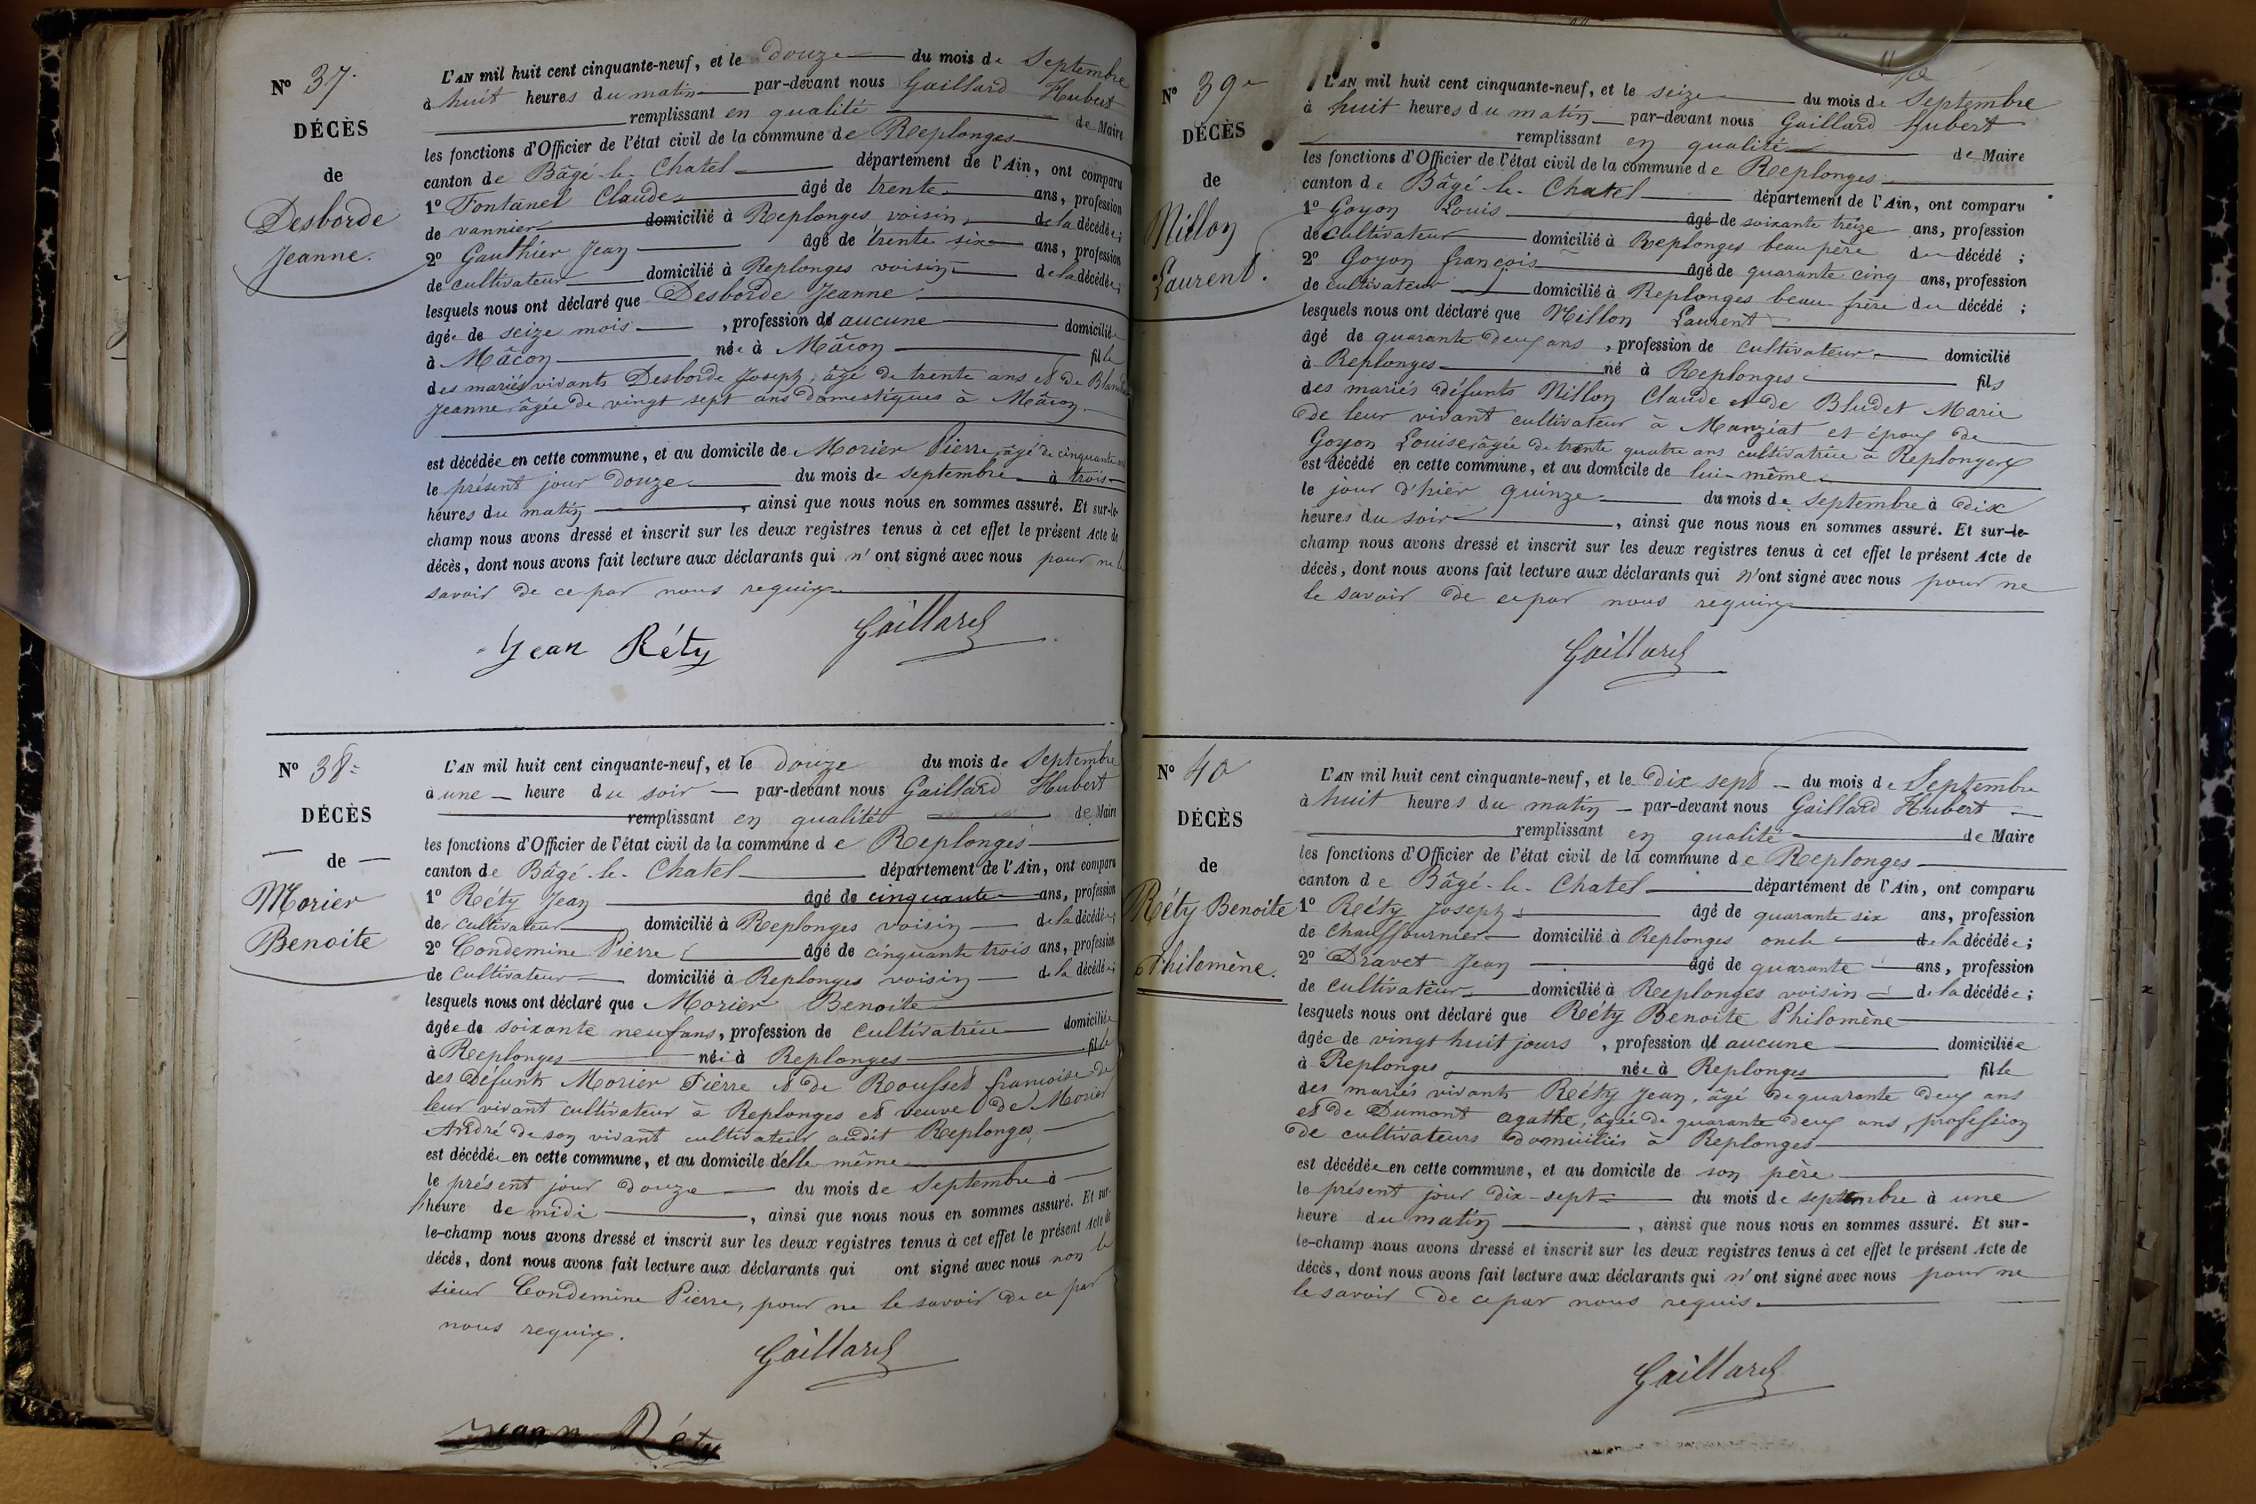 N° 37.
DÉCÈS
de
Desborde
Jeanne.
L'AN mil huit cent cinquante-neuf, et le douze du mois de Septembre
à huit heures du matin par-devant nous Gaillard Hubert
remplissant en qualité de Maire
les fonctions d'Officier de l'état civil de la commune de Replonges
canton de Bâgé-le-Chatel département de l'Ain, ont comparu
1° Fontanel Claude âgé de trente ans, profession
de vannier domicilié à Replonges voisin de la décédée;
2° Gauthier Jean âgé de trente six ans, profession
de cultivateur domicilié à Replonges voisin de la décédée;
lesquels nous ont déclaré que Desborde Jeanne
âgée de seize mois, profession d'aucune domiciliée
à Mâcon née à Mâcon fille
des mariés vivants Desborde Joseph, âgé de trente ans et de
Jeanne âgée de vingt sept ans domestiques à Mâcon
est décédée en cette commune, et au domicile de Morier Pierre, âgé de cinquante
le présent jour douze du mois de septembre à trois
heures du matin, ainsi que nous nous en sommes assuré. Et sur-le-
champ nous avons dressé et inscrit sur les deux registres tenus à cet effet le présent Acte de
décès, dont nous avons fait lecture aux déclarants qui n'ont signé avec nous pour ne le
savoir de ce par nous requis
Jean Réty Gaillard
N° 38
DÉCÈS
de
Morier
Benoite
L'AN mil huit cent cinquante-neuf, et le douze du mois de Septembre
à une heure du soir par-devant nous Gaillard Hubert
remplissant en qualité de Maire
les fonctions d'Officier de l'état civil de la commune de Replonges
canton de Bâgé-le-Chatel département de l'Ain, ont comparu
1° Réty Jean âgé de cinquante ans, profession
de cultivateur domicilié à Replonges voisin de la décédée;
2° Condemine Pierre âgé de cinquante trois ans, profession
de cultivateur domicilié à Replonges voisin de la décédée;
lesquels nous ont déclaré que Morier Benoite
âgée de soixante neuf ans, profession de cultivatrice domiciliée
à Replonges née à Replonges fille
des défunts Morier Pierre et de Rousset françoise de
leur vivant cultivateur à Replonges et veuve de Morier
André de son vivant cultivateur audit Replonges,
est décédée en cette commune, et au domicile d'elle même
le présent jour douze du mois de Septembre à
l'heure de midi, ainsi que nous nous en sommes assuré. Et sur-
le-champ nous avons dressé et inscrit sur les deux registres tenus à cet effet le présent Acte de
décès, dont nous avons fait lecture aux déclarants qui ont signé avec nous non le
sieur Condemine Pierre, pour ne le savoir de ce par
nous requis.
Gaillard
Jean Réty
N° 39
DÉCÈS
de
Millon
Laurent.
L'AN mil huit cent cinquante-neuf, et le seize du mois de Septembre
à huit heures du matin par-devant nous Gaillard Hubert
remplissant en qualité de Maire
les fonctions d'Officier de l'état civil de la commune de Replonges
canton de Bâgé-le-Chatel département de l'Ain, ont comparu
1° Goyon Louis âgé de soixante treize ans, profession
de cultivateur domicilié à Replonges beau père du décédé;
2° Goyon françois âgé de quarante cinq ans, profession
de cultivateur domicilié à Replonges beau-frère du décédé;
lesquels nous ont déclaré que Millon Laurent
âgé de quarante deux ans, profession de cultivateur domicilié
à Replonges né à Replonges fils
des mariés défunts Millon Claude et de Bludet Marie
de leur vivant cultivateur à Manziat et époux de
Goyon Louise, âgée de trente quatre ans cultivatrice à Replonges
est décédé en cette commune, et au domicile de lui-même
le jour d'hier quinze du mois de septembre à dix
heures du soir, ainsi que nous nous en sommes assuré. Et sur-le-
champ nous avons dressé et inscrit sur les deux registres tenus à cet effet le présent Acte de
décès, dont nous avons fait lecture aux déclarants qui n'ont signé avec nous pour ne
le savoir de ce par nous requis
Gaillard
N° 40
DÉCÈS
de
Réty Benoite
Philomène.
L'AN mil huit cent cinquante-neuf, et le dix sept du mois de Septembre
à huit heures du matin par-devant nous Gaillard Hubert
remplissant en qualité de Maire
les fonctions d'Officier de l'état civil de la commune de Replonges
canton de Bâgé-le-Chatel département de l'Ain, ont comparu
1° Réty Joseph âgé de quarante six ans, profession
de chauffournier domicilié à Replonges oncle de la décédée;
2° Dravet Jean âgé de quarante ans, profession
de cultivateur domicilié à Replonges voisin de la décédée;
lesquels nous ont déclaré que Réty Benoite Philomène
âgée de vingt huit jours, profession d'aucune domiciliée
à Replonges née à Replonges fille
des mariés vivants Réty Jean, âgé de quarante deux ans
et de Dumont agathe, âgée de quarante deux ans, profession
de cultivateurs domiciliés à Replonges
est décédée en cette commune, et au domicile de son père
le présent jour dix-sept du mois de septembre à une
heure du matin, ainsi que nous nous en sommes assuré. Et sur-
le-champ nous avons dressé et inscrit sur les deux registres tenus à cet effet le présent Acte de
décès, dont nous avons fait lecture aux déclarants qui n'ont signé avec nous pour ne
le savoir de ce par nous requis.
Gaillard